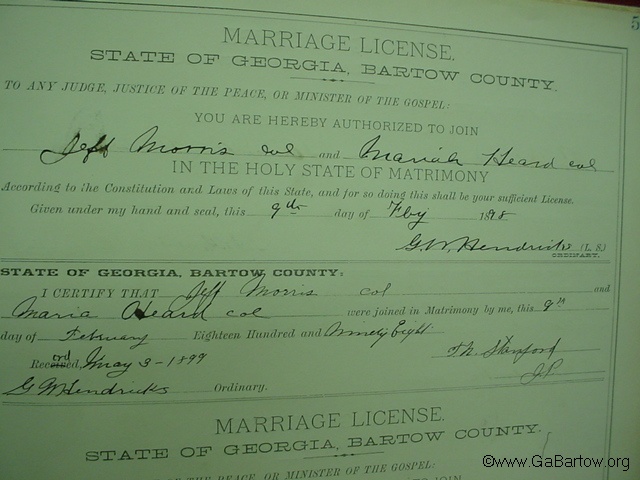 5
MARRIAGE LICENSE.
STATE OF GEORGIA, BARTOW COUNTY.
TO ANY JUDGE, JUSTICE OF THE PEACE, OR MINISTER OF THE GOSPEL:
YOU ARE HEREBY AUTHORIZED TO JOIN
Jeff Morris col and Mariah Heard col
IN THE HOLY STATE OF MATRIMONY
According to the Constitution and Laws of this State, and for so doing this shall be your sufficient License.
Given under my hand and seal, this 9th day of Feby 1898
G.W. Hendricks (L. S.)
ORDINARY.
STATE OF GEORGIA, BARTOW COUNTY:
I CERTIFY THAT Jeff Morris col and
Maria Heard col were joined in Matrimony by me, this 9th
day of February Eighteen Hundred and Ninety Eight
Recorded, May 3-1899 Stanford
G W Hendricks Ordinary. J.P.
MARRIAGE LICENSE.
STATE OF GEORGIA, BARTOW COUNTY.
OF THE PEACE, OR MINISTER OF THE GOSPEL:
TO JOIN
©www.GaBartow.org